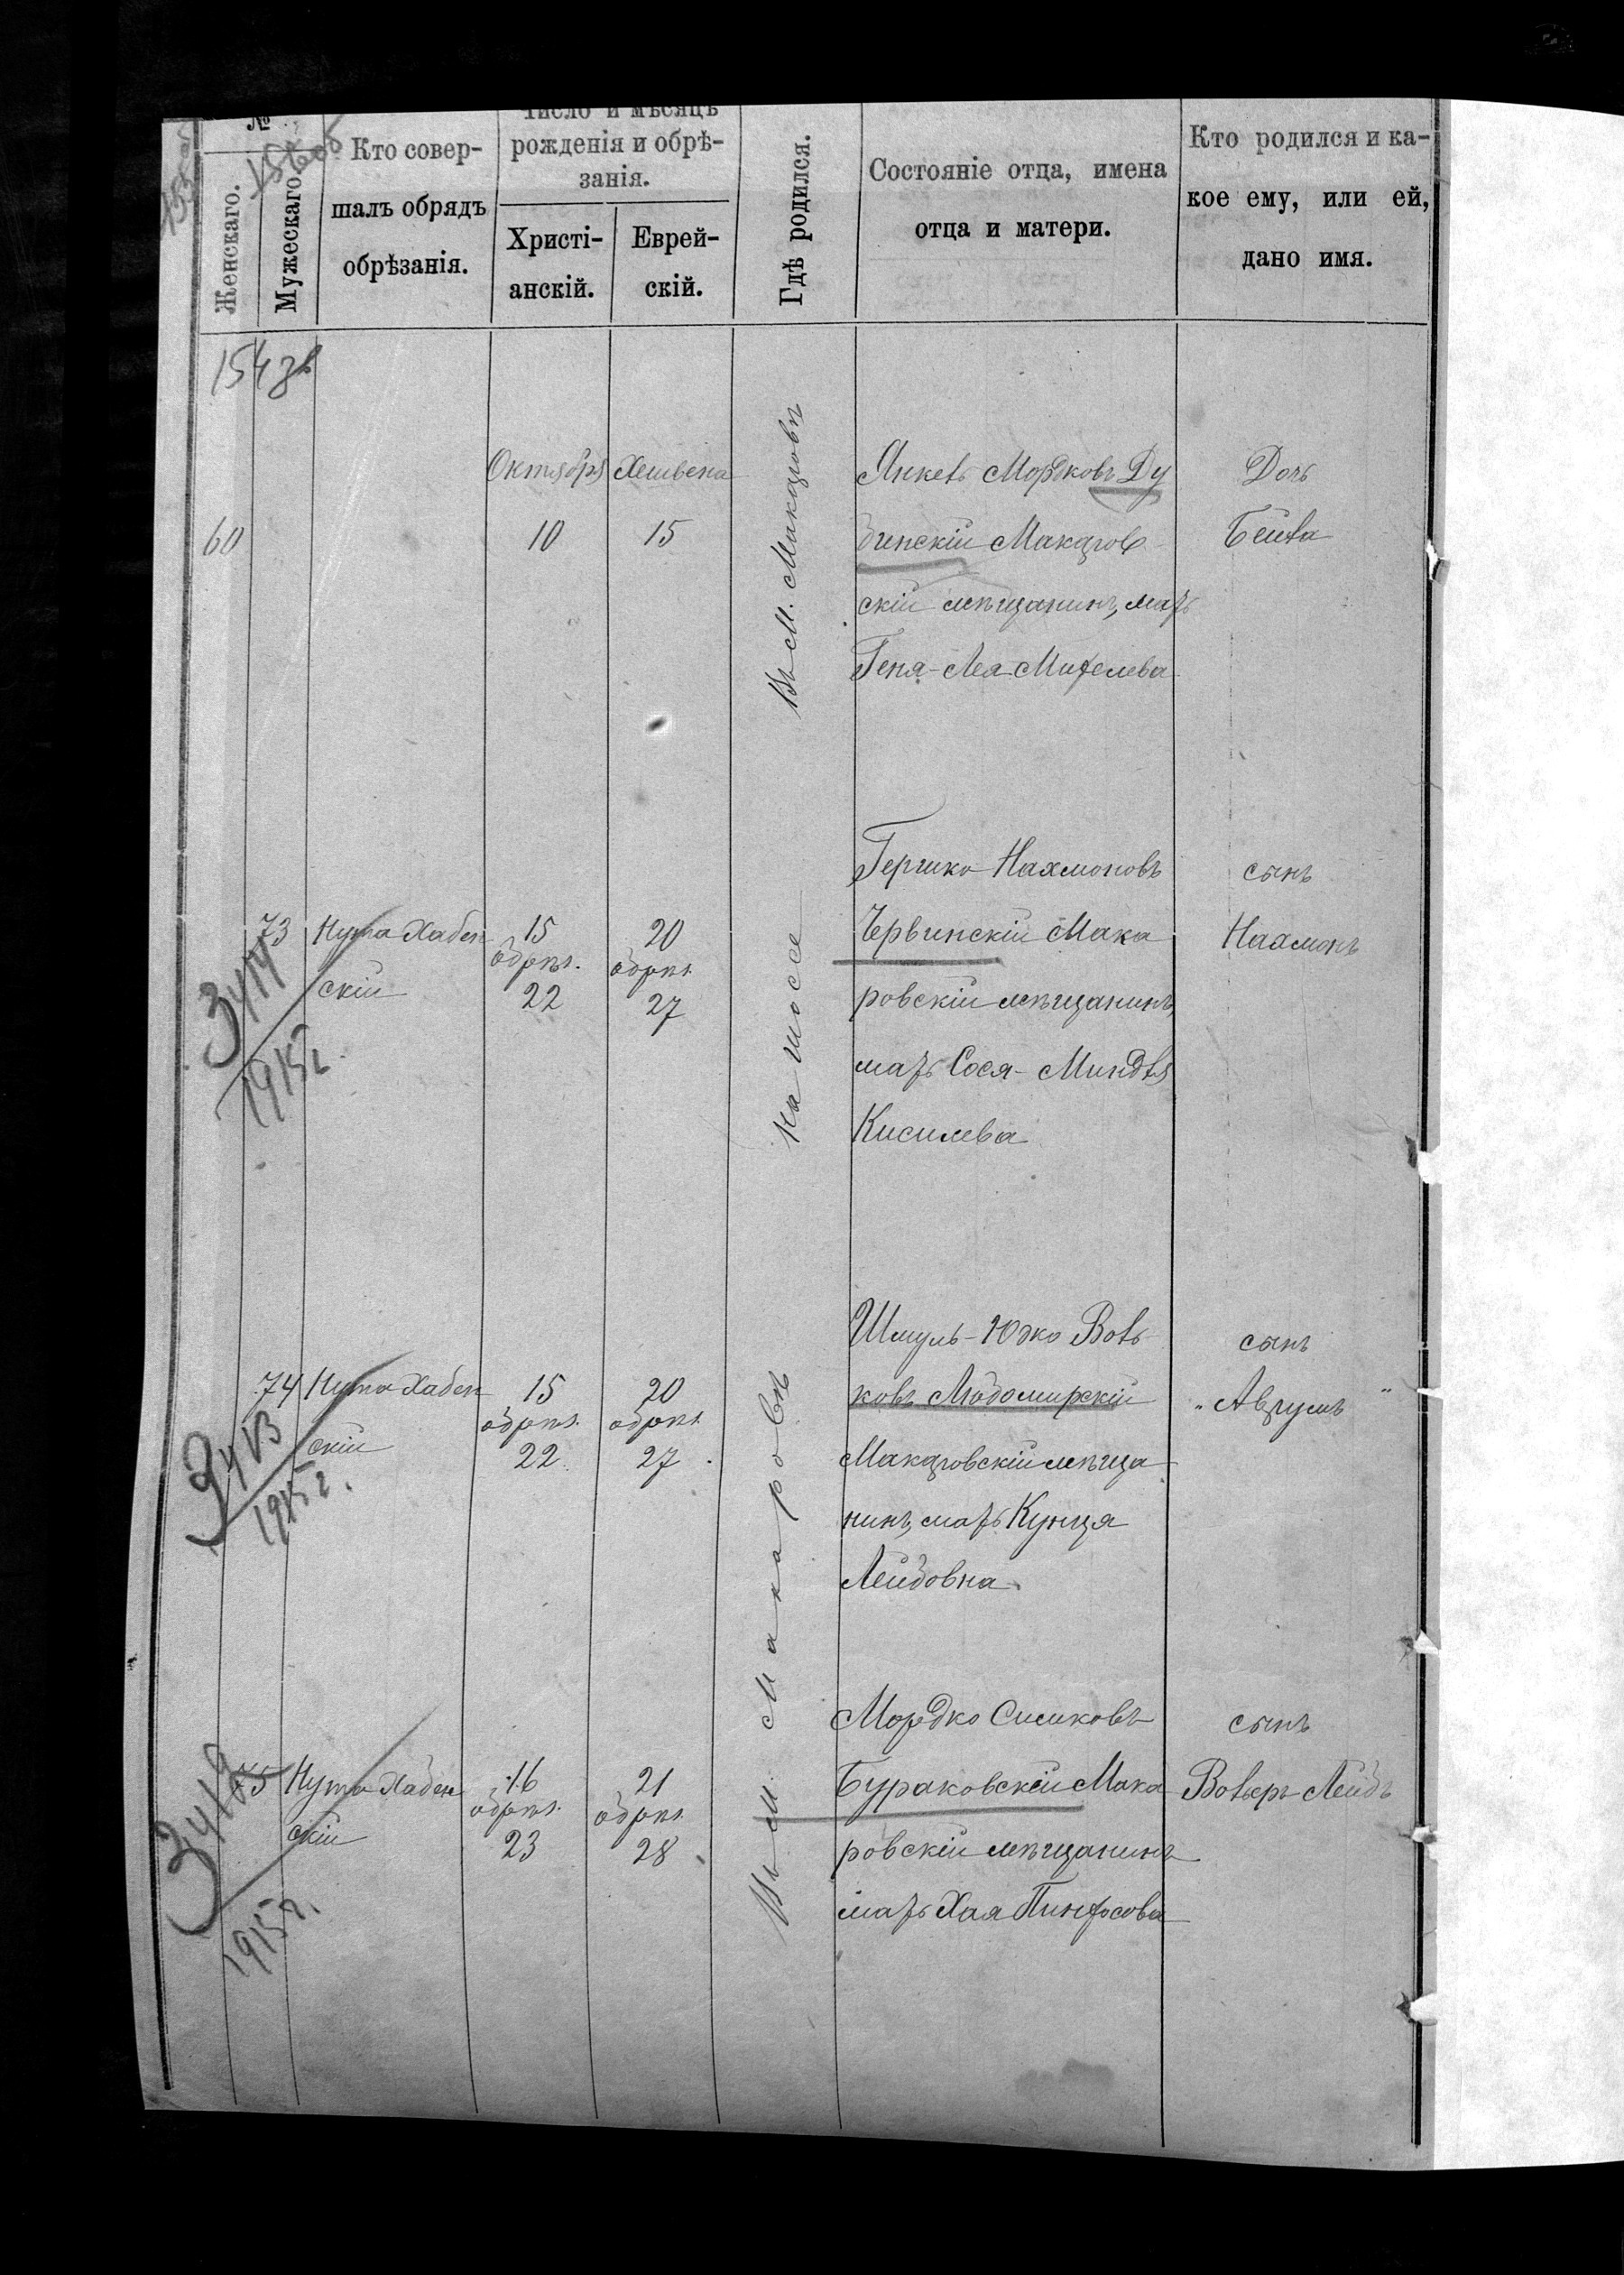 №
Женскаго.
Мужескаго.
Кто совер-
шалъ обрядъ
обрѣзанія.
Число и мѣсяцъ
рожденія и обрѣ-
занія.
Христі-
анскій.
Еврей-
скій.
Гдѣ родился.
Состояніе отца, имена
отца и матери.
Кто родился и ка-
кое ему, или ей,
дано имя.
154
60
Октября
10
Хешвена
15
Въ М. Макаровѣ
Янкель Мордковъ Ду
бинскій Макаров
скій мѣщанинъ, мать
Геня-Лея Михелева
Дочь
Бейла
73
3414
1915г.
Нута Хабен
скій
15
обрѣз.
22
20
обрѣз.
27
На шоссе
Гершко Нахмоновъ
Червинскій Мака
ровскій мѣщанинъ,
мать Сося-Миндля
Кисилева
сынъ
Нахмонъ
74
3413
1915г.
Нута Хабен
скій
15
обрѣз.
22
20
обрѣз.
27
Въ М. Макаровѣ
Шмуль-Юдко Воль
ковъ Людомирскій
Макаровскій мѣща
нинъ, мать Кунця
Лейбовна
сынъ
„Аврумъ"
75
1915г.
Нута Хабен
скій
16
обрѣз.
23
21
обрѣз.
28
Мордко Сисиковъ
Бураковскій Мака
ровскій мѣщанинъ
мать Хая Пинхосова
сынъ
Вольфъ-Лейбъ